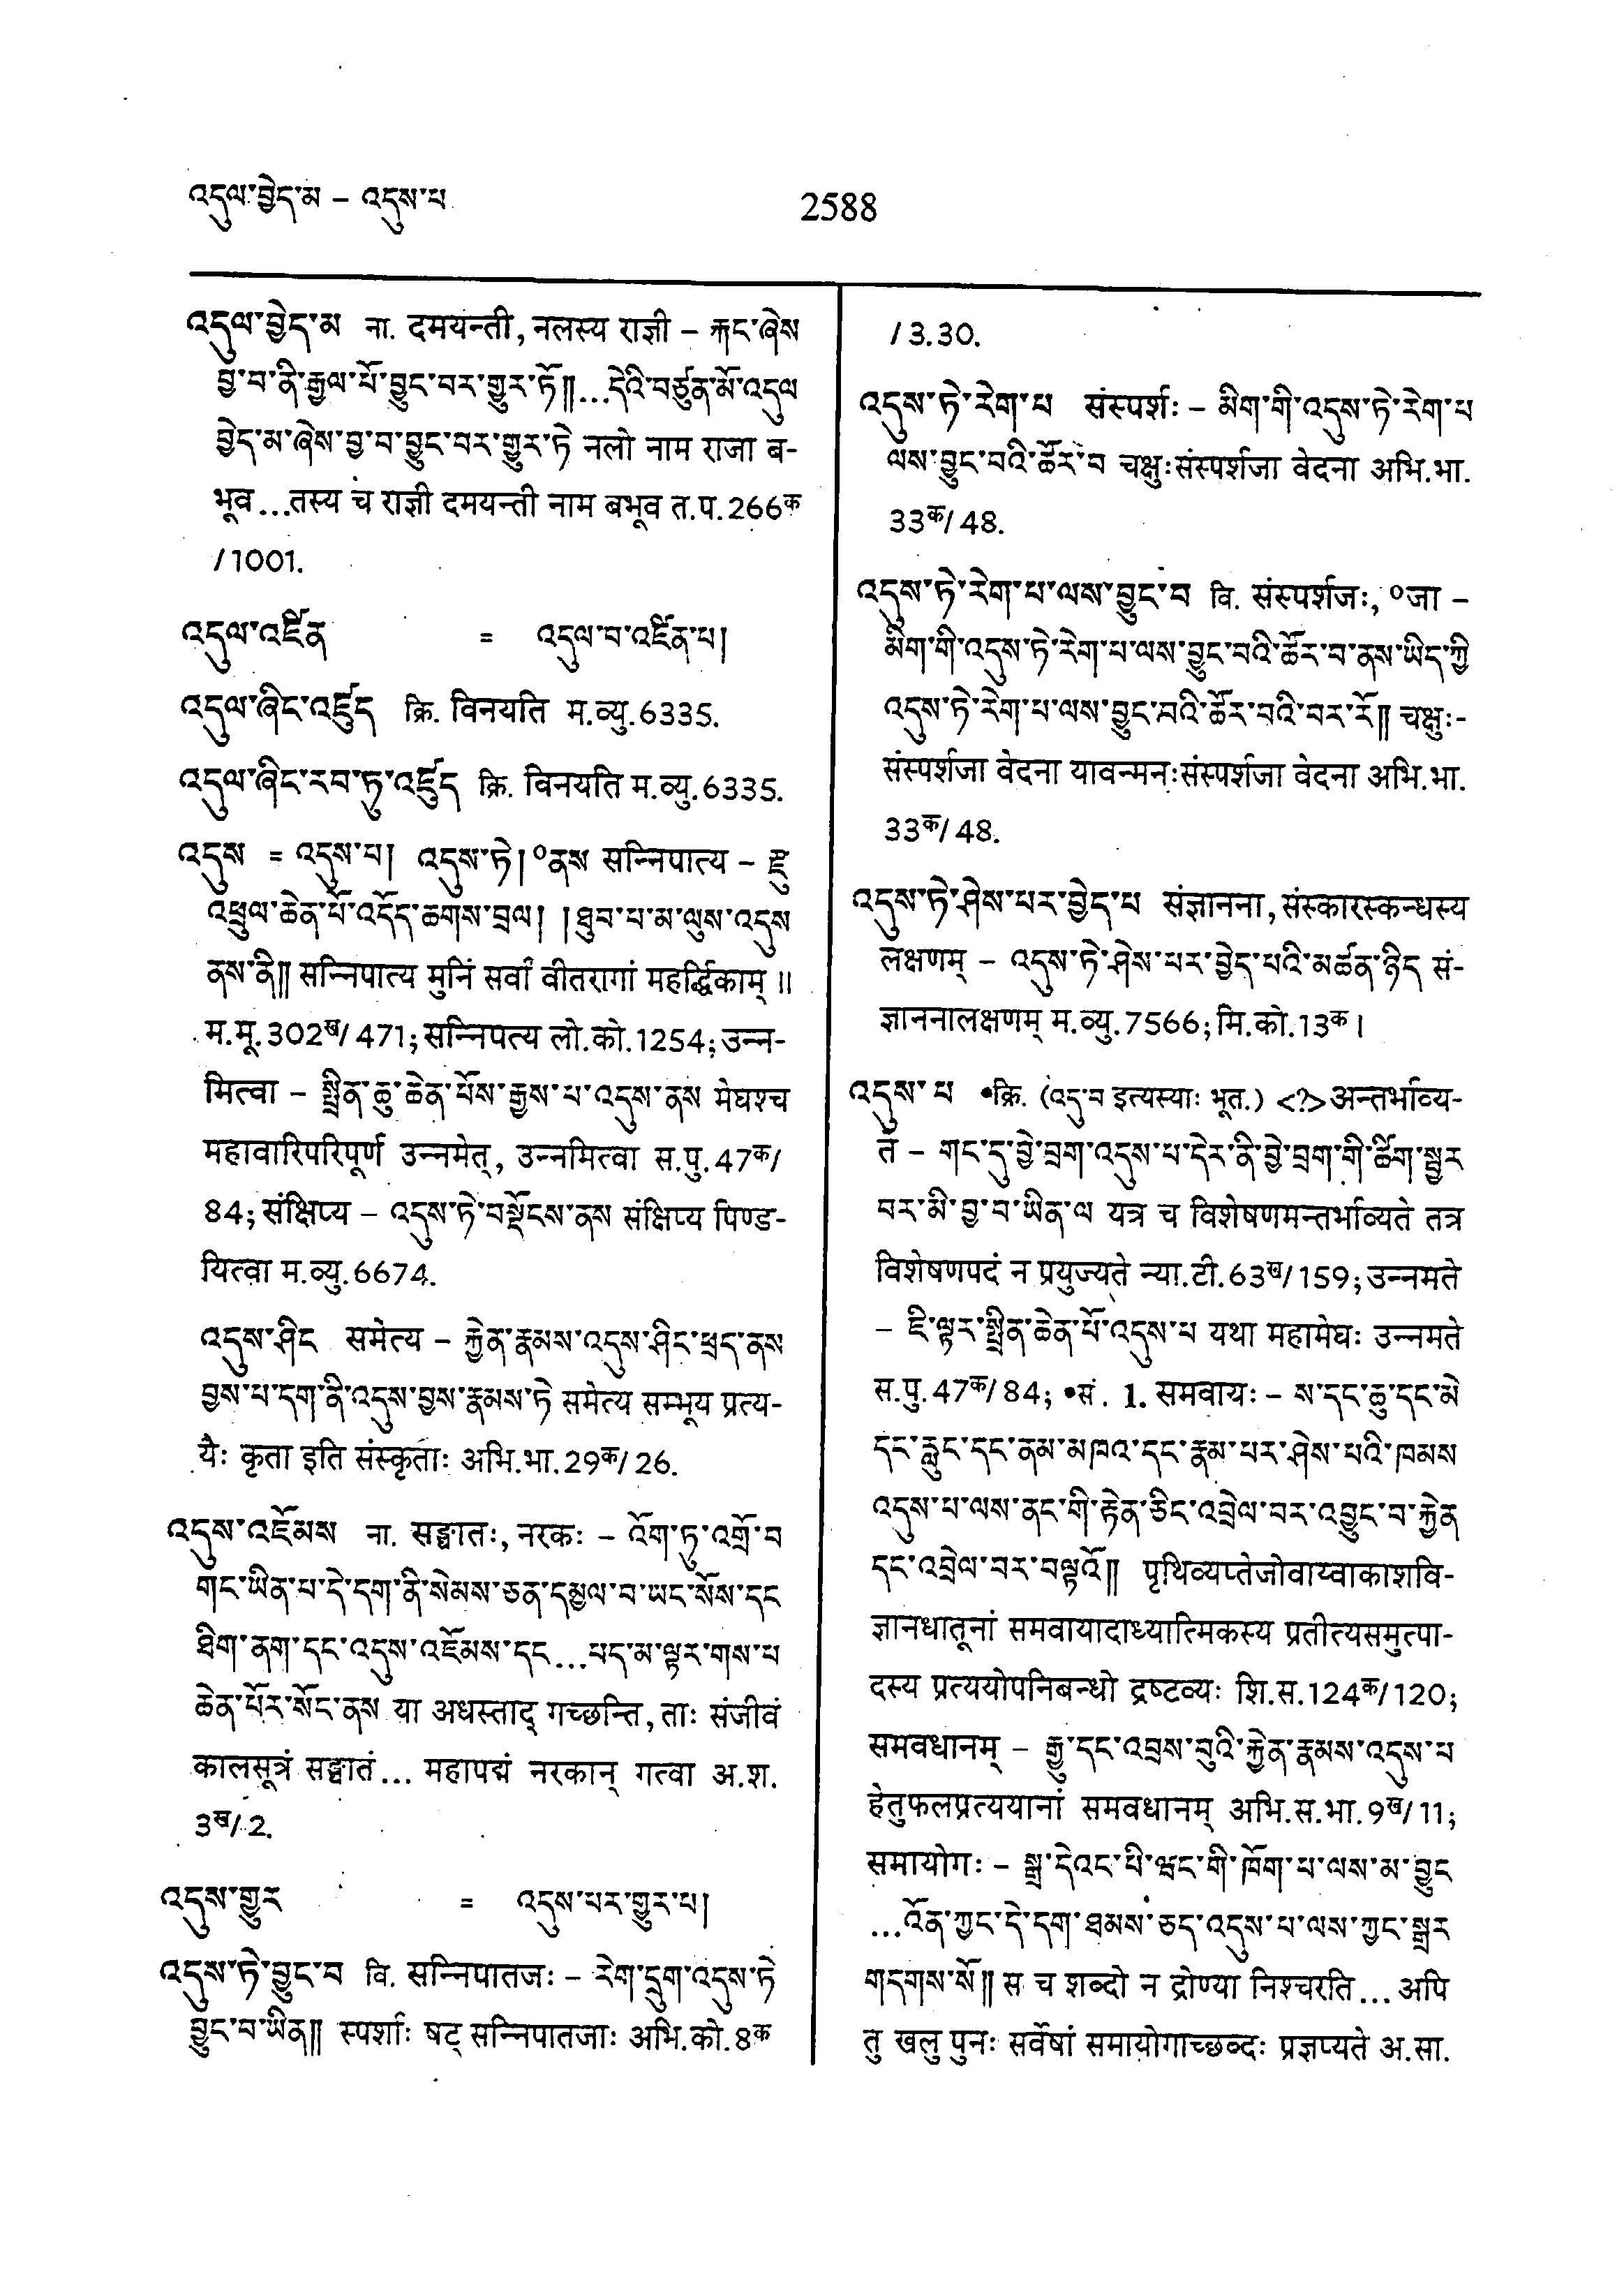 འདུལ་བྱེད་མ – འདུས་པ
2588
འདུལ་བྱེད་མ ना. दमयन्ती, नलस्य राज्ञी – རྐང་ཞེས
བྱ་བ་ནི་རྒྱལ་པོ་བྱུང་བར་གྱུར་ཏོ༎...དེའི་བཙུན་མོ་འདུལ
བྱེད་མ་ཞེས་བྱ་བ་བྱུང་བར་གྱུར་ཏེ नलो नाम राजा ब-
भूव...तस्य च राज्ञी दमयन्ती नाम बभूव त.प.266क
/1001.
འདུལ་འཛིན = འདུལ་བ་འཛིན་པ།
འདུལ་ཞིང་འཛུད क्रि. विनयति म.व्यु.6335.
འདུལ་ཞིང་རབ་ཏུ་འཛུད क्रि. विनयति म.व्यु.6335.
འདུས = འདུས་པ། འདུས་ཏེ། ०ནས सन्निपात्य – རྫུ
འཕྲུལ་ཆེན་པོ་འདོད་ཆགས་བྲལ། །ཐུབ་པ་མ་ལུས་འདུས
ནས་ནི༎ सन्निपात्य मुनिं सर्वां वीतरागां महर्द्धिकाम् ॥
म.मू.302ख/471; सन्निपत्य लो.को.1254; उन्न-
मित्वा – སྤྲིན་ཆུ་ཆེན་པོས་རྒྱས་པ་འདུས་ནས मेघश्च
महावारिपरिपूर्ण उन्नमेत्, उन्नमित्वा स.पु.47क/
84; संक्षिप्य – འདུས་ཏེ་བསྡོངས་ནས संक्षिप्य पिण्ड-
यित्वा म.व्यु.6674.
འདུས་ཤིང समेत्य – རྐྱེན་རྣམས་འདུས་ཤིང་ཕྲད་ནས
བྱས་པ་དག་ནི་འདུས་བྱས་རྣམས་ཏེ समेत्य सम्भूय प्रत्य-
यैः कृता इति संस्कृताः अभि.भा.29क/26.
འདུས་འཇོམས ना. सङ्घातः, नरकः – འོག་ཏུ་འགྲོ་བ
གང་ཡིན་པ་དེ་དག་ནི་སེམས་ཅན་དམྱལ་བ་ཡང་སོས་དང
ཐིག་ནག་དང་འདུས་འཇོམས་དང...པད་མ་ལྟར་གས་པ
ཆེན་པོར་སོང་ནས या अधस्ताद् गच्छन्ति, ताः संजीवं
कालसूत्रं सङ्घातं... महापद्मं नरकान् गत्वा अ.श.
3ख/2.
འདུས་གྱུར = འདུས་པར་གྱུར་པ།
འདུས་ཏེ་བྱུང་བ वि. सन्निपातजः – རེག་དྲུག་འདུས་ཏེ
བྱུང་བ་ཡིན༎ स्पर्शाः षट् सन्निपातजाः अभि.को.8क
/3.30.
འདུས་ཏེ་རེག་པ संस्पर्शः – མིག་གི་འདུས་ཏེ་རེག་པ
ལས་བྱུང་བའི་ཚོར་བ चक्षुःसंस्पर्शजा वेदना अभि.भा.
33क/48.
འདུས་ཏེ་རེག་པ་ལས་བྱུང་བ वि. संस्पर्शजः, ०जा –
མིག་གི་འདུས་ཏེ་རེག་པ་ལས་བྱུང་བའི་ཚོར་བ་ནས་ཡིད་ཀྱི
འདུས་ཏེ་རེག་པ་ལས་བྱུང་བའི་ཚོར་བའི་བར་རོ༎ चक्षुः-
संस्पर्शजा वेदना यावन्मनःसंस्पर्शजा वेदना अभि.भा.
33क/48.
འདུས་ཏེ་ཤེས་པར་བྱེད་པ संज्ञानना, संस्कारस्कन्धस्य
लक्षणम् – འདུས་ཏེ་ཤེས་པར་བྱེད་པའི་མཚན་ཉིད सं-
ज्ञाननालक्षणम् म.व्यु.7566; मि.को.13क।
འདུས་པ •क्रि. (འདུ་བ इत्यस्याः भूत.) <?> अन्तर्भाव्य-
ते – གང་དུ་བྱེ་བྲག་འདུས་པ་དེར་ནི་བྱེ་བྲག་གི་ཚིག་སྦྱར
བར་མི་བྱ་བ་ཡིན་ལ यत्र च विशेषणमन्तर्भाव्यते तत्र
विशेषणपदं न प्रयुज्यते न्या.टी.63ख/159; उन्नमते
– ཇི་ལྟར་སྤྲིན་ཆེན་པོ་འདུས་པ यथा महामेघः उन्नमते
स.पु.47क/84; •सं. 1. समवायः – ས་དང་ཆུ་དང་མེ
དང་རླུང་དང་ནམ་མཁའ་དང་རྣམ་པར་ཤེས་པའི་ཁམས
འདུས་པ་ལས་ནང་གི་རྟེན་ཅིང་འབྲེལ་བར་འབྱུང་བ་རྐྱེན
དང་འབྲེལ་བར་བལྟའོ༎ पृथिव्यप्तेजोवाय्वाकाशवि-
ज्ञानधातूनां समवायादाध्यात्मिकस्य प्रतीत्यसमुत्पा-
दस्य प्रत्ययोपनिबन्धो द्रष्टव्यः शि.स.124क/120;
समवधानम् – རྒྱུ་དང་འབྲས་བུའི་རྐྱེན་རྣམས་འདུས་པ
हेतुफलप्रत्ययानां समवधानम् अभि.स.भा.9ख/11;
समायोगः – སྒྲ་དེའང་པི་ཝང་གི་ཁོག་པ་ལས་མ་བྱུང
...འོན་ཀྱང་དེ་དག་ཐམས་ཅད་འདུས་པ་ལས་ཀྱང་སྒྲར
གདགས་སོ༎ स च शब्दो न द्रोण्या निश्चरति... अपि
तु खलु पुनः सर्वेषां समायोगाच्छब्दः प्रज्ञप्यते अ.सा.